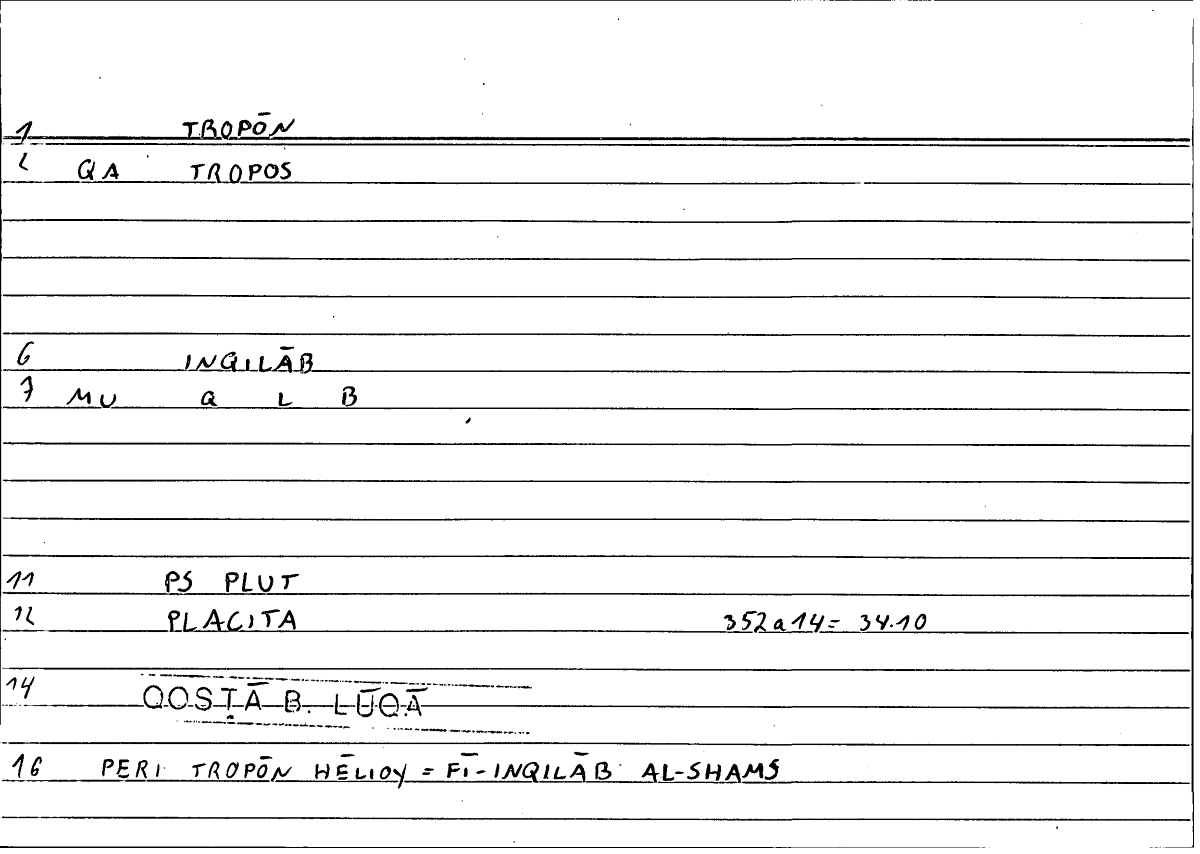 1 TROPŌN
2 QA TROPOS
6 INQILĀB
7 MU Q L B
11 PS PLUT
12 PLACITA 352a14= 34.10
14 QOSṬĀ B. LŪQĀ
16 PERI TROPŌN HĒLIOY = FĪ-INQILĀB AL-SHAMS